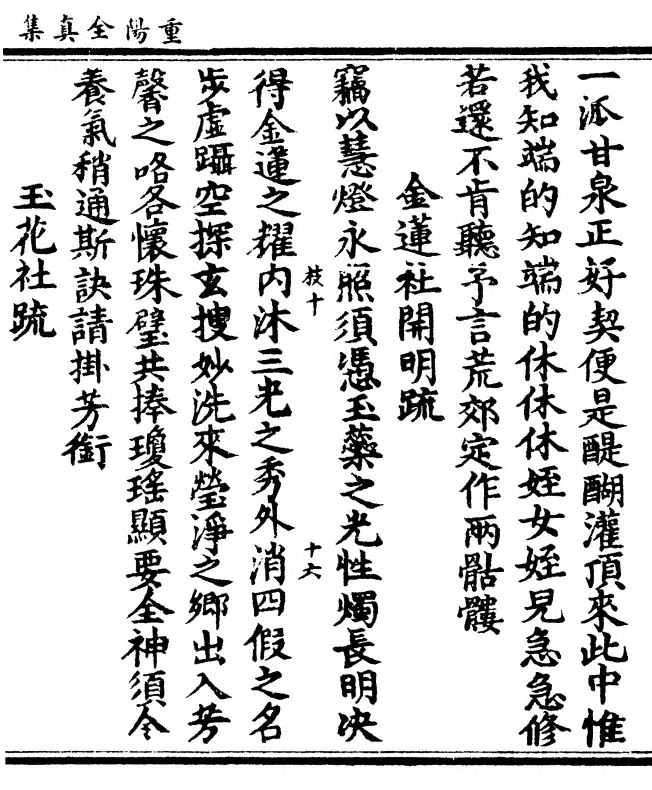 重陽全真集
一派甘泉正好契便是醍醐灌頂來此中惟
我知端的知端的休休休姹女姹兒急急修
若還不肯聽予言荒郊定作兩骷髏
金蓮社開明疏
竊以慧燈永照須憑玉蘂之光性燭長明決
枝十
十六
得金蓮之耀内沐三光之秀外消四假之名
步虛躡空探玄搜妙洗來瑩淨之鄉出入芳
馨之咯各懷珠璧共捧瓊瑤顯要全神須令
養氣稍通斯訣請掛芳銜
玉花社疏